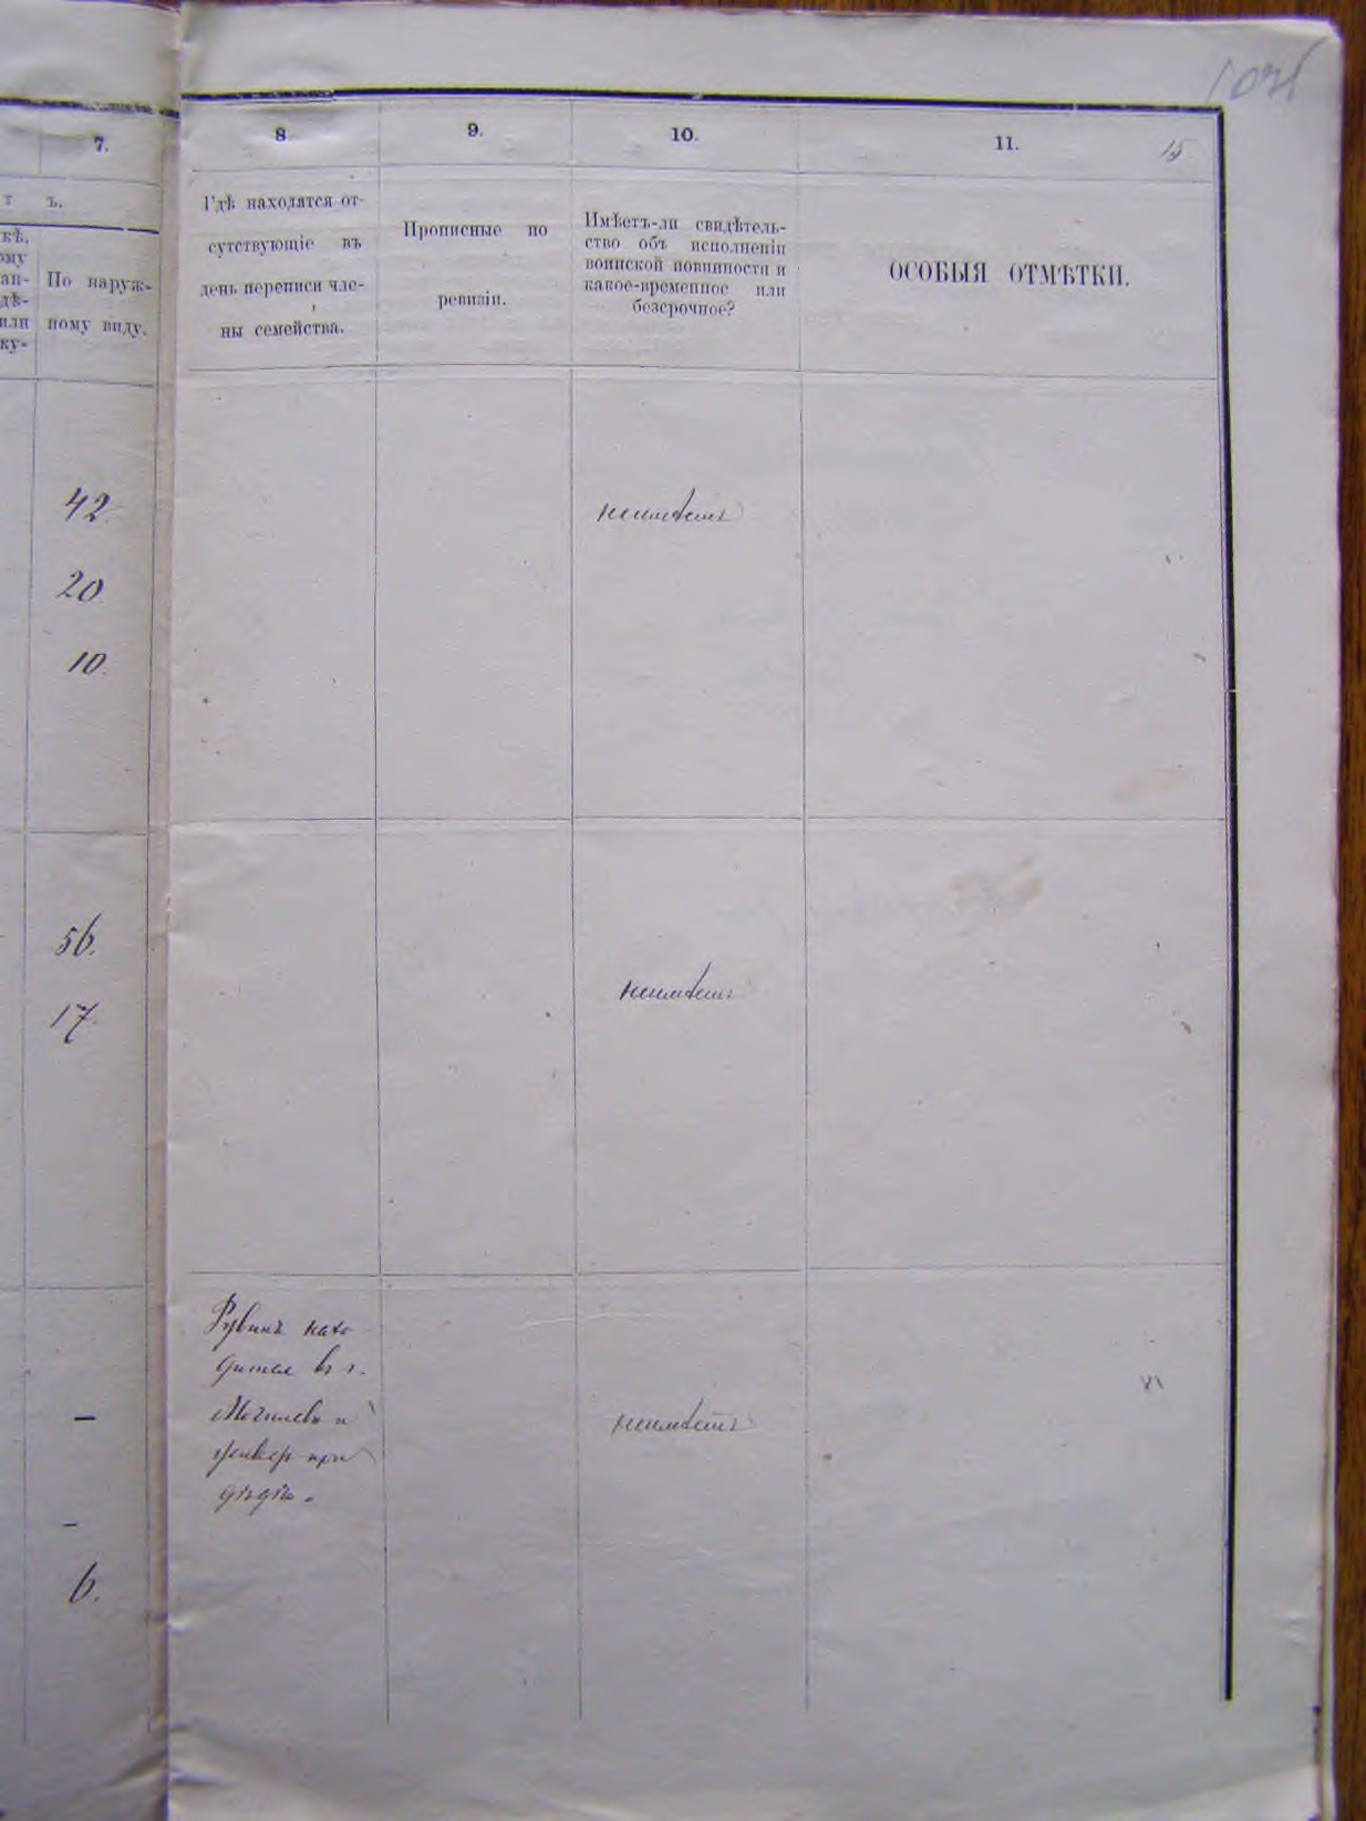 15
7.
8
9.
10.
11.
т ъ.
кѣ,
ому
ан-
дѣ-
или
ку-
По наруж-
ному виду.
Гдѣ находятся от-
сутствующіе въ
день переписи чле-
ны семейства.
Прописные по
ревизіи.
Имѣетъ-ли свидѣтель-
ство объ исполненіи
воинской повинности и
какое-временное или
безсрочное?
ОСОБЫЯ ОТМѢТКИ.
42.
неимѣетъ
20.
10.
56.
неимѣетъ
17.
Рувинъ нахо
дится въ г.
Могилевѣ и
при
дѣдѣ.
—
неимѣетъ
—
6.